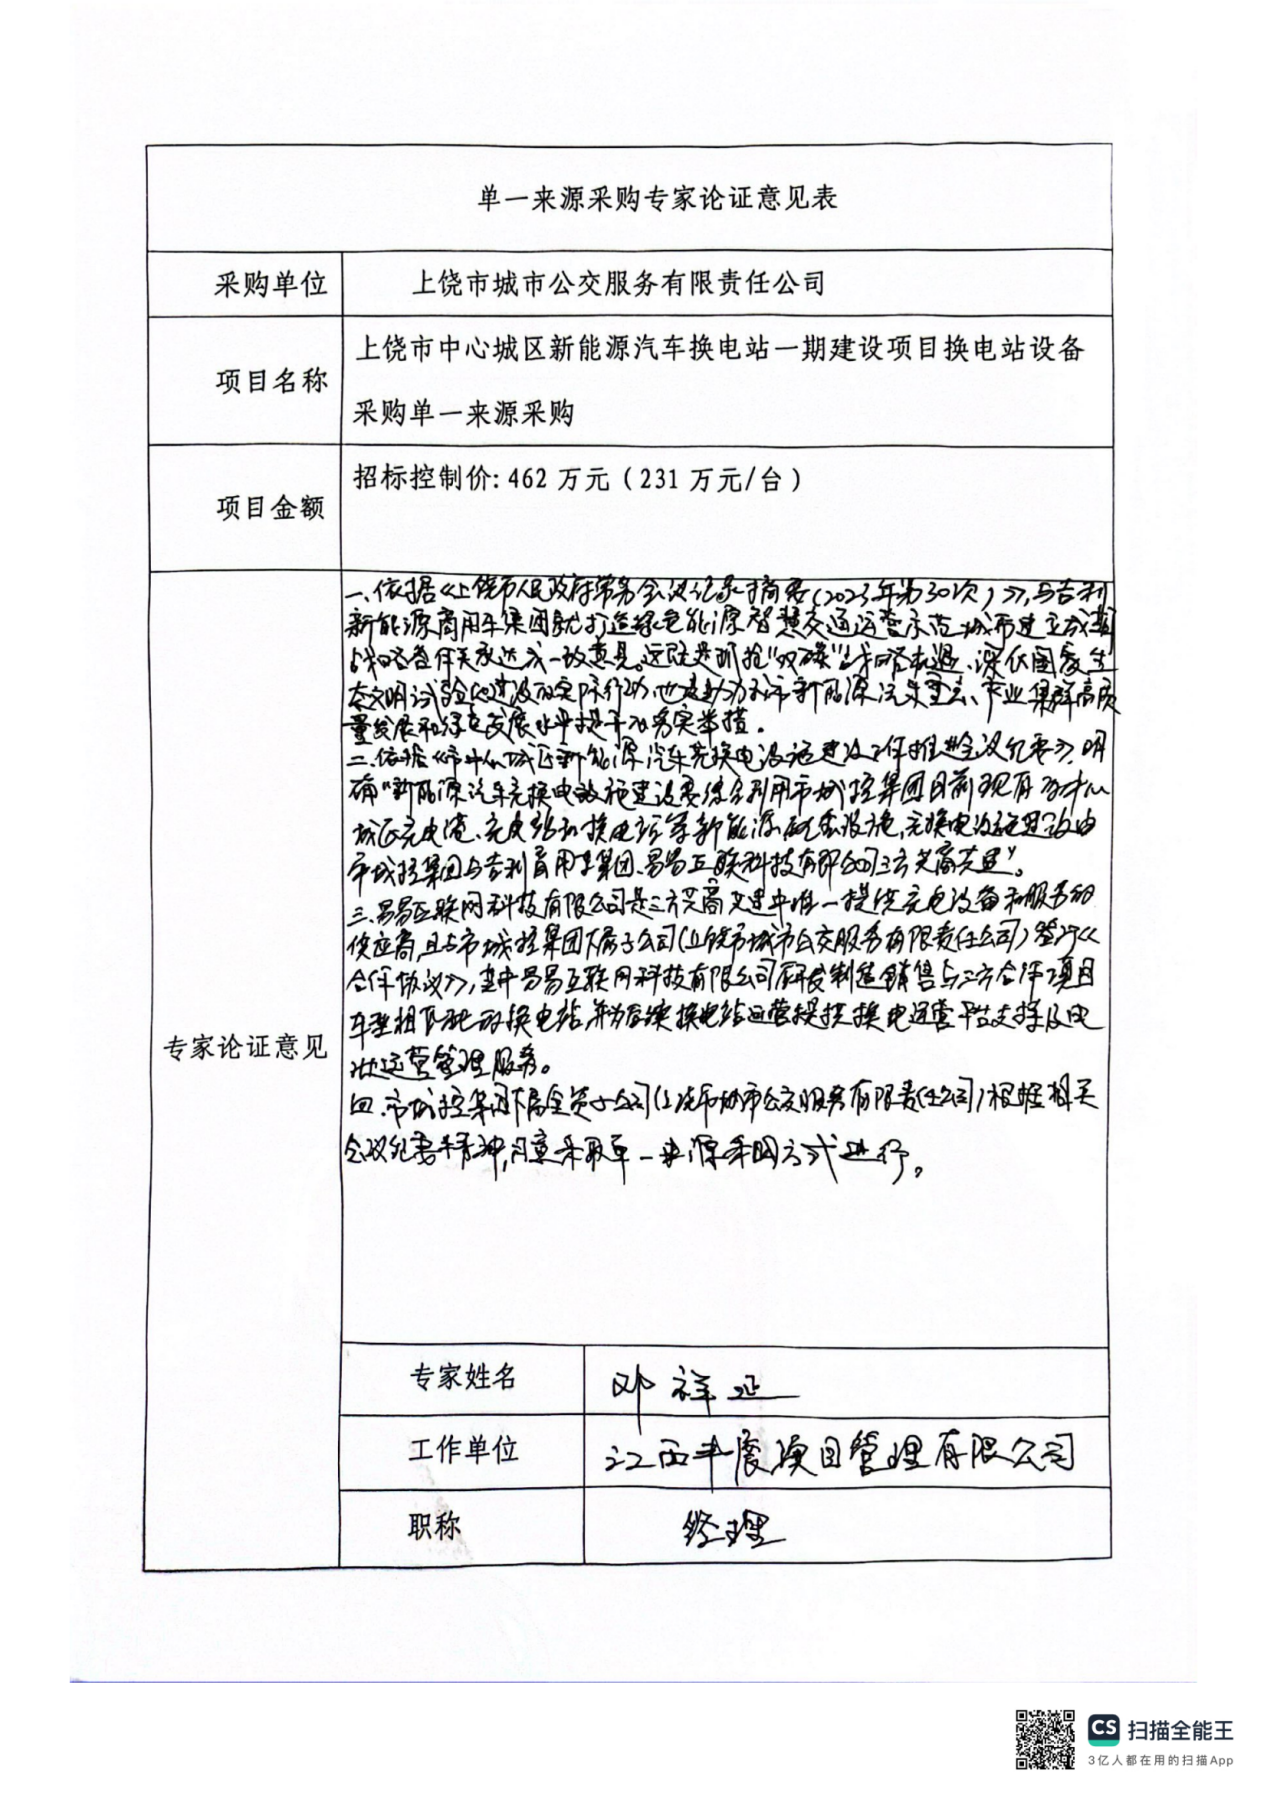 单一来源采购专家论证意见表
采购单位
上饶市城市公交服务有限责任公司
项目名称
上饶市中心城区新能源汽车换电站一期建设项目换电站设备
采购单一来源采购
项目金额
招标控制价:462 万元（231 万元/台）
专家论证意见
一、依据《上饶市人民政府常务会议记录摘要(2023年第30次)》,与吉利
新能源商用车集团就打造绿色能源智慧交通运营示范城市建立
战略合作关系达成一致意见。这既是抓抢"双碳"战略机遇、深化国家生
态文明试验区建设的实际行动,也是助力我市新能源汽车重点产业集群高质
量发展和绿色发展水平提升的务实举措。
二、依据《市中心城区新能源汽车充换电设施建设工作推进会议纪要》,明
确"新能源汽车充换电设施建设要综合利用市城控集团目前现有的中心
城区充电港、充电站和换电站等新能源配套设施,充换电设施建设由
市城控集团与吉利商用车集团、易易互联科技有限公司三方共商共建"。
三、易易互联网科技有限公司是三方共商共建中唯一提供充电设备和服务的
供应商,且与市城控集团下属子公司(上饶市城市公交服务有限责任公司)签订《
合作协议》,其中易易互联网科技有限公司研发制造销售与三方合作项目
车型相匹配的换电站,并为后续换电站运营提供换电运营平台支撑及电
池运营管理服务。
四、市城控集团下属全资子公司(上饶市城市公交服务有限责任公司)根据相关
会议纪要精神,同意采取单一来源采购方式进行。
专家姓名
邓祥延
工作单位
江西丰展项目管理有限公司
职称
经理
CS 扫描全能王
3亿人都在用的扫描App